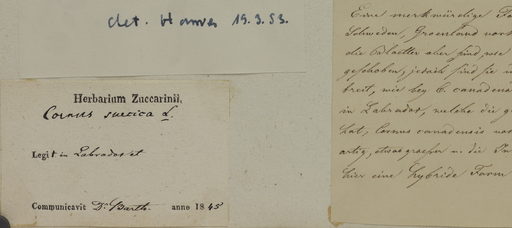 det. Hanws 19.3.53.
Herbarium Zuccarinii.
Cornus suecica L.
Legit in Labrador et
Communicavit Dr. Barth. anno 1845
Eine merkwürdige Fo
Schweden, Groenland vor
die Blaetter aber sind, wie
geschoben, jedoch sind sie
breit, wie bey C. canadens
in Labrador, welche die g
hat, Cornus canadensis vor
artig, etwas groeser u. die In
hier eine hybride Form